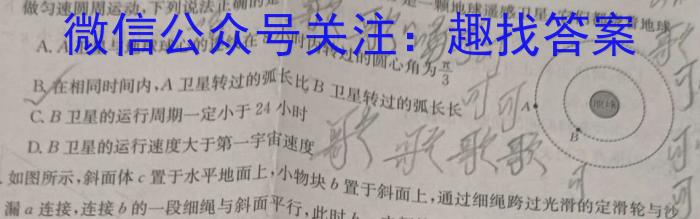 做匀速圆周运动,下列说法正确的是
一颗地球遥感卫星
微信公众号关注:趣找答案
转过的圆心角为π/3
B.在相同时间内,A卫星转过的弧长比B卫星转过的弧长长
C.B卫星的运行周期一定小于24小时
D.B卫星的运行速度大于第一宇宙速度
A
地球
B
可可
可
歌 歌 歌 歌
如图所示,斜面体c置于水平地面上,小物块b置于斜面上,通过细绳跨过光滑的定滑轮与沙
漏a连接,连接b的一段细绳与斜面平行,此时